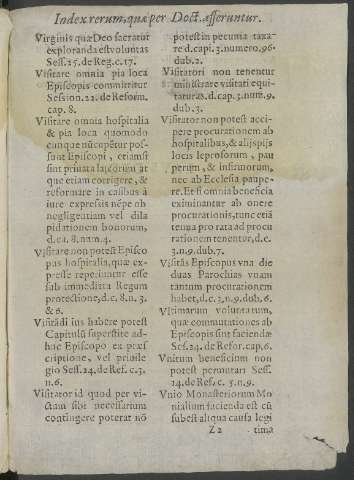 Index rerum, quæ per Doct. asseruntur.
Virginis quæ Deo sacratur
exploranda est voluntas
Sess. 25. de Reg. c. 17.
Visitare omnia pia loca
Episcopis committitur
Session. 22. de Reform.
cap. 8.
Visitare omnia hospitalia
& pia loca quomodo
cunque nũcupẽtur pos-
sunt Episcopi, etiamsi
sint privata laicorum at
que etiam corrigere, &
reformare in casibus à
iure expressis nẽpe ob
negligentiam vel dila
pidationem bonorum,
d. ca. 8. num. 4.
Visitare non potest Episco
pus hospitalia, quæ ex-
presse reperiuntur esse
sub immediata Regum
protectione, d. c. 8. n. 3.
& 6.
Visitãdi ius habere potest
Capitulũ superstite ad-
huc Episcopo ex præs
criptione, vel privile
gio Sess. 24. de Ref. c. 3.
n. 6.
Visitator id quod per vi-
ctum sibi necessarium
contingere poterat nõ
potest in pecunia taxa-
re d. capi. 3. numero. 96.
dub. 2.
Visitatori non tenentur
ministrare visitati equi-
taturas. d. cap. 3. num. 9.
dub. 3.
Visitator non potest acci-
pere procurationem ab
hospitalibus, & alijs pijs
locis leprosorum, pau
perum, & infirmorum,
nec ab Ecclesia paupe-
re. Et si omnia beneficia
eximinantur ab onere
procurationis, tunc etiã
tenua pro rata ad procu
rationem tenentur, d. c.
3. n. 9. dub. 7.
Visitãs Episcopus vna die
duas Parochias vnam
tantum procurationem
habet, d. c. 3. n. 9. dub. 6.
Vltimarum voluntatum,
quæ commutationes ab
Episcopis sint faciendæ
Ses. 24. de Refor. cap. 6.
Vnitum beneficium non
potest permutari Sess.
14. de Ref. c. 5. n. 9.
Vnio Monasteriorum Mo
nialium facienda est cũ
subest aliqua causa legi
Z 2 tima